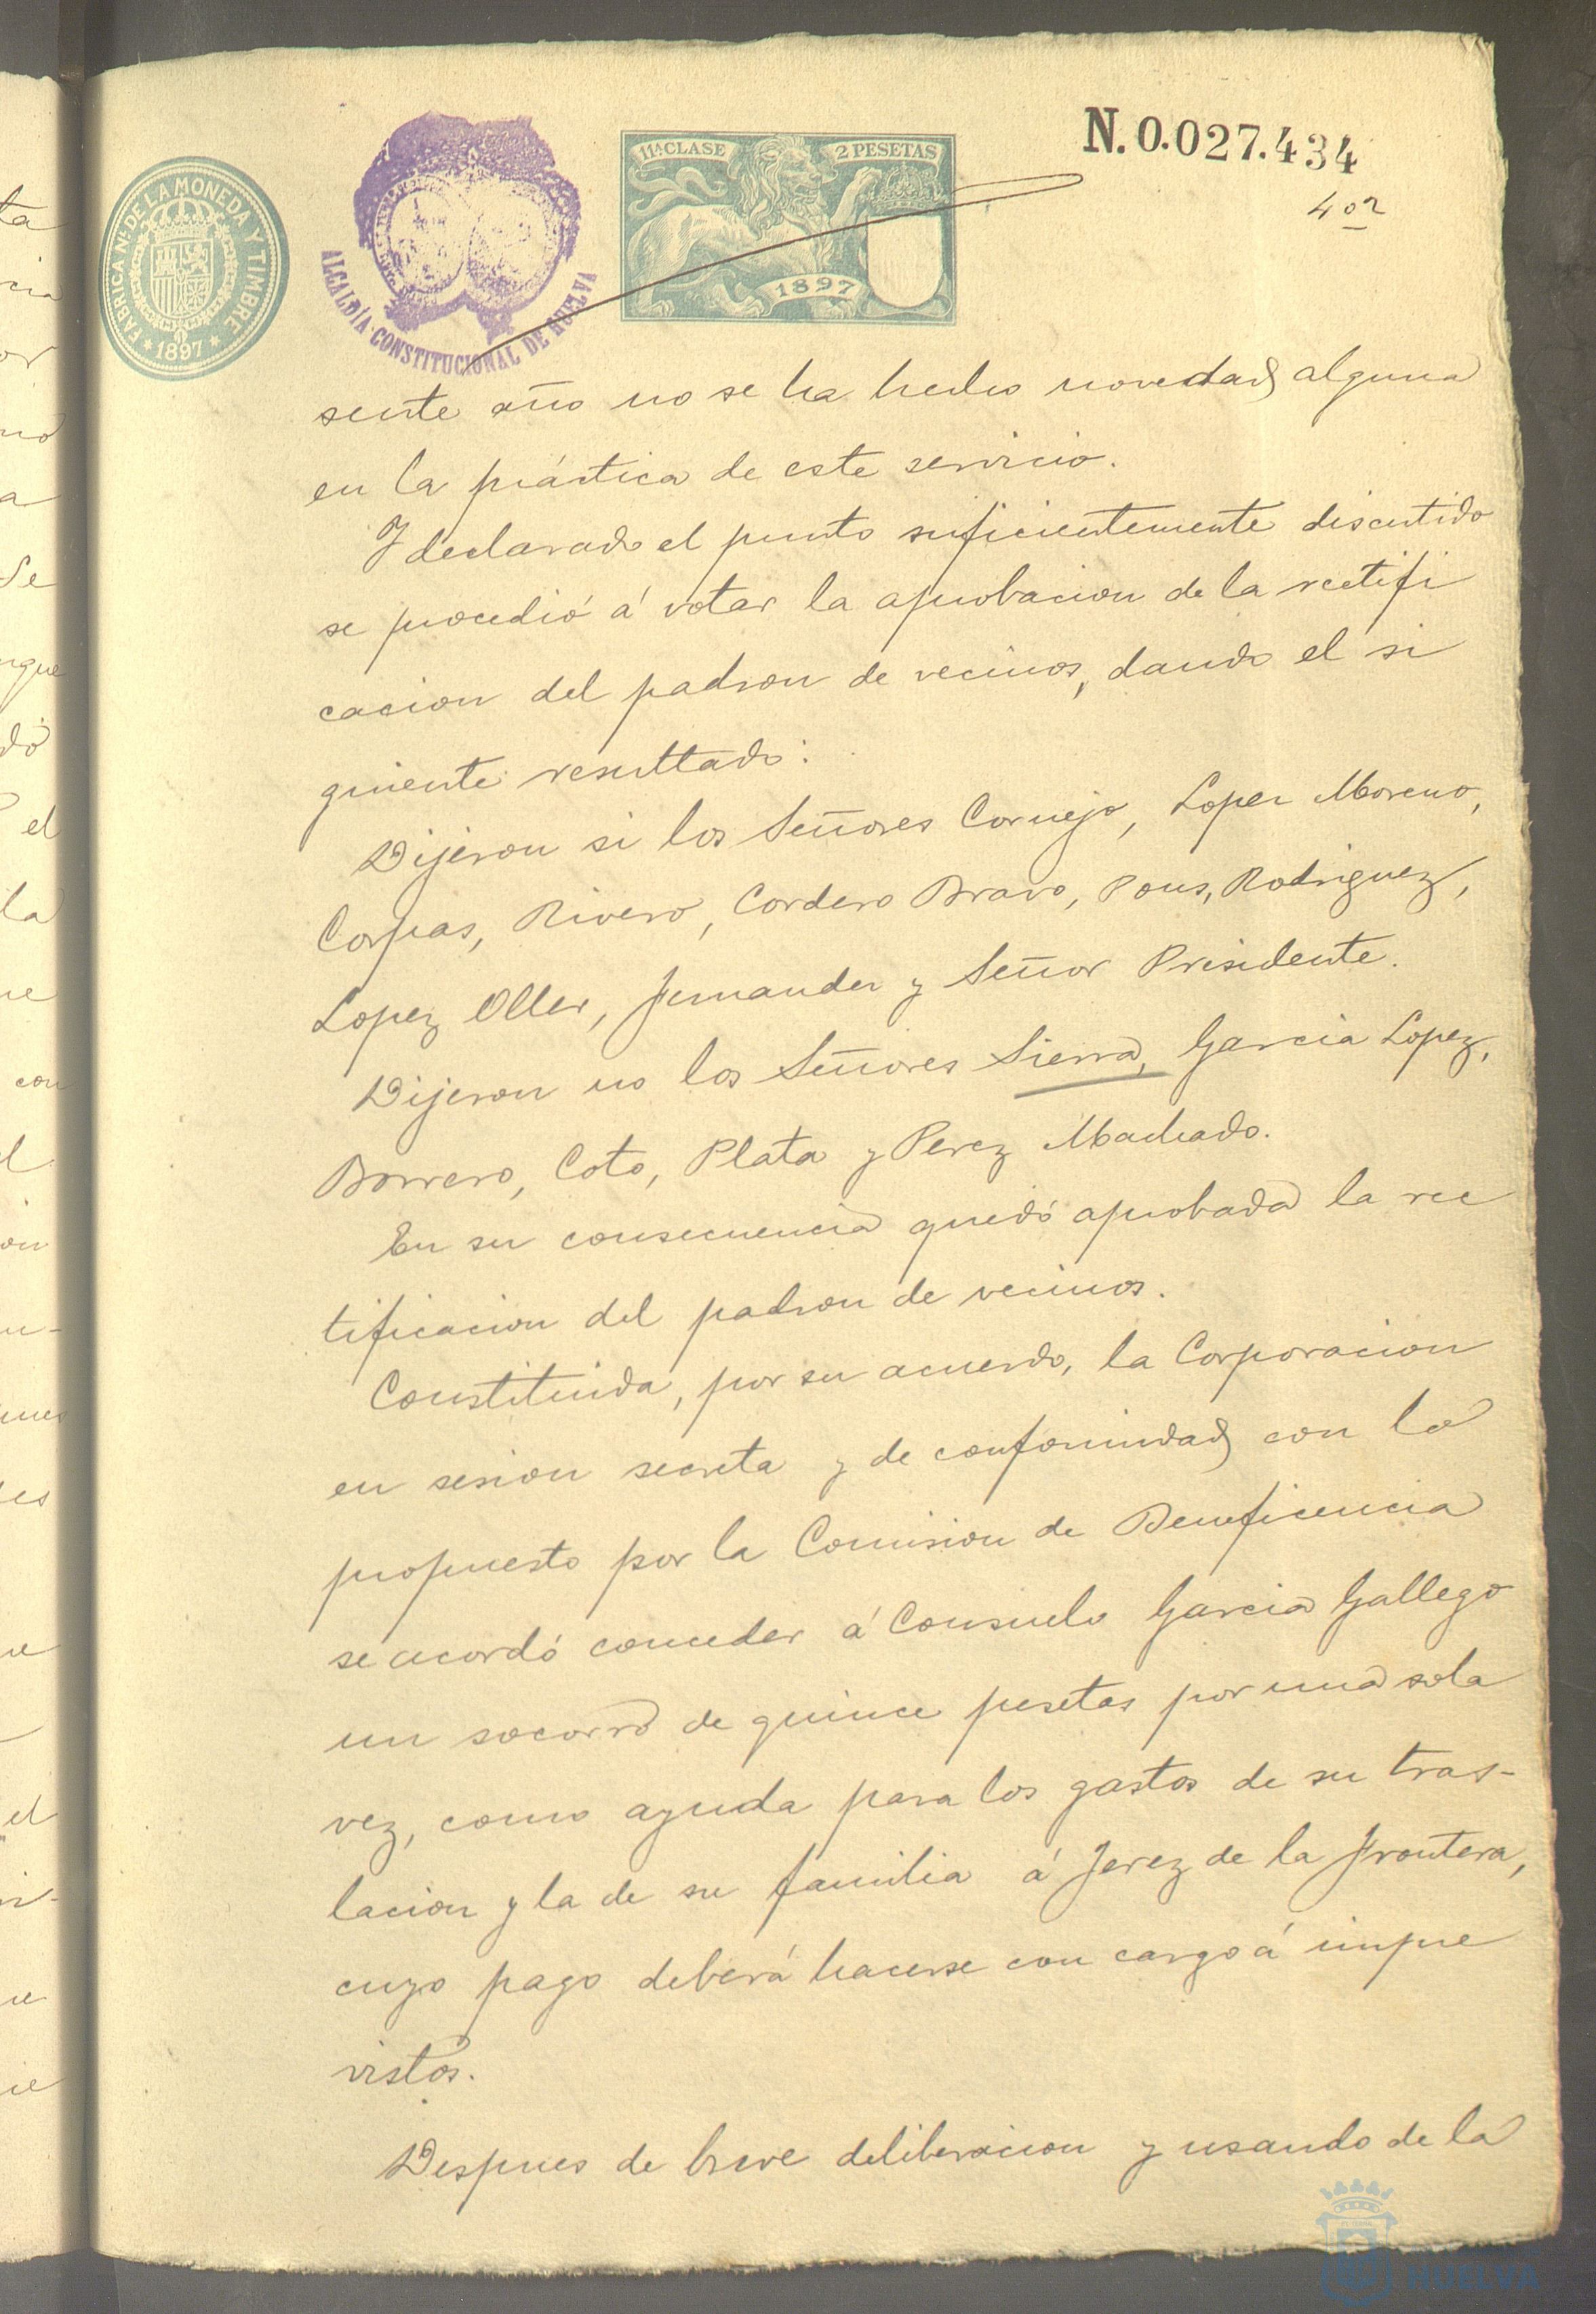 N. 0.027.434
40
FABRICA NL. DE LA MONEDA Y TIMBRE
* 1897 *
ALCALDÍA CONSTITUCIONAL DE HUELVA
11ª CLASE 2 PESETAS
1897
sente año no se ha hecho novedad alguna
en la práctica de este servicio.
Y declarado el punto suficientemente discutido
se procedió á votar la aprobacion de la rectifi
cacion del padron de vecinos, dando el si
guiente resultado:
Dijeron si los Señores Cornejo, Lopez Moreno,
Corpas, Rivero, Cordero Bravo, Pons, Rodriguez,
Lopez Oller, Fernandez y Señor Presidente.
Dijeron no los Señores Sierra, Garcia Lopez,
Borrero, Coto, Plata y Perez Machado.
En su consecuencia quedó aprobada la rec
tificacion del padron de vecinos.
Constituida, por su acuerdo, la Corporacion
en sesion secreta y de conformidad con lo
propuesto por la Comision de Beneficencia
se acordó conceder á Consuelo Garcia Gallego
un socorro de quince pesetas por una sola
vez, como ayuda para los gastos de su tras-
lacion y la de su familia á Jerez de la Frontera,
cuyo pago deberá hacerse con cargo á impre
vistos.
Despues de breve deliberacion y usando de la
HUELVA